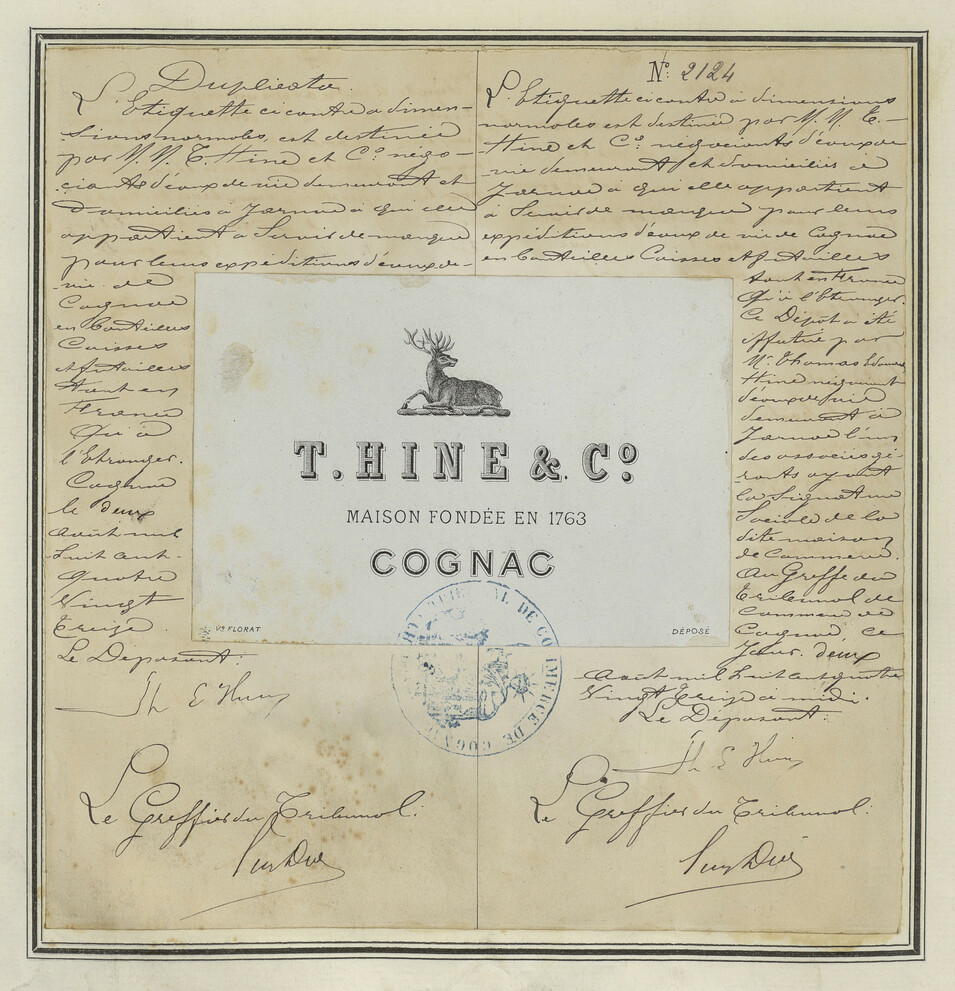 Duplicata.
L'Etiquette ci contre à dimen-
sions normales, est destinée
par M.M. T. Hine et Co. négo-
ciants d'eaux de vie demeurant et
domiciliés à Jarnac à qui elle
appartient à servir de marque
pour leurs expéditions d'eaux-de-
vie de
Cognac
en Bouteilles
Caisses
et futailles
tant en
France
qu'à
l'Etranger.
Cognac
le deux
août mil
huit cent-
quatre
vingt
treize.
Le Déposant:
Th E Hine
Le Greffier du Tribunal:
No. 2124
L'Etiquette ci contre à dimensions
normales est destinée par M.M. T.
Hine et Co. négociants d'eaux de
vie demeurant et domiciliés à
Jarnac à qui elle appartient
à servir de marque pour leurs
expéditions d'eaux de vie de Cognac
en Bouteilles Caisses et futailles
tant en France
qu'à l'Etranger.
Ce Dépôt a été
effectué par
Mr. Thomas Edouard
Hine négociant
d'eaux de vie
demeurant à
Jarnac l'un
des associés gé-
rants ayant
la signature
sociale de la
dite maison
de Commerce.
Au Greffe du
Tribunal de
Commerce de
Cognac, ce
jour. deux
août mil huit cent quatre
vingt treize à midi.
Le Déposant:
Th E Hine
Le Greffier du Tribunal:
T. HINE & Co.
MAISON FONDÉE EN 1763
COGNAC
Ve FLORAT
DÉPOSÉ
TRIBUNAL DE COMMERCE DE COGNAC